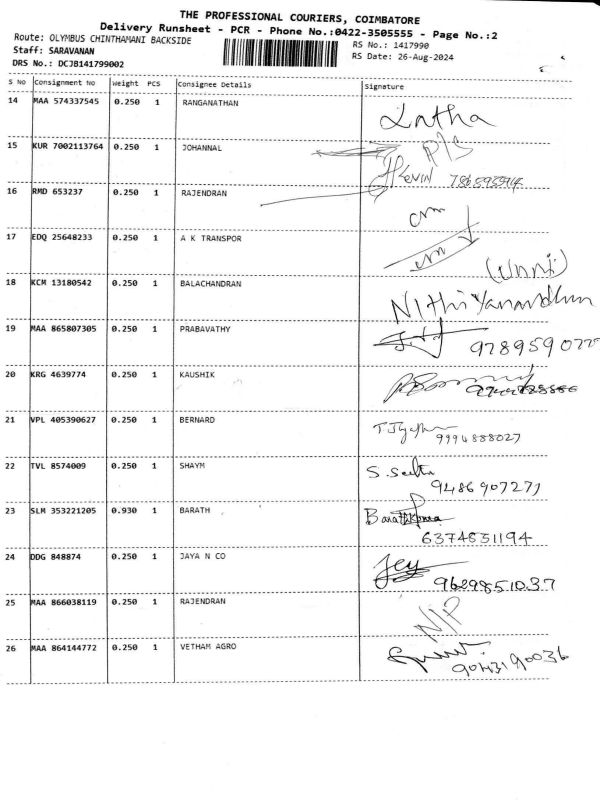 THE PROFESSIONAL COURIERS, COIMBATORE
Delivery Runsheet - PCR - Phone No.:0422-3505555 - Page No.:2
Route: OLYMBUS CHINTHAMANI BACKSIDE RS No.: 1417990
Staff: SARAVANAN RS Date: 26-Aug-2024
DRS No.: DCJB141799002
S No Consignment No Weight PCS Consignee Details Signature
14 MAA 574337545 0.250 1 RANGANATHAN Latha
15 KUR 7002113764 0.250 1 JOHANNAL P/S
KEVIN
16 RMD 653237 0.250 1 RAJENDRAN
17 EDQ 25648233 0.250 1 A K TRANSPOR
(unni)
18 KCM 13180542 0.250 1 BALACHANDRAN
19 MAA 865807305 0.250 1 PRABAVATHY
20 KRG 4639774 0.250 1 KAUSHIK
21 VPL 405390627 0.250 1 BERNARD
9994888027
22 TVL 8574009 0.250 1 SHAYM
9486907271
23 SLM 353221205 0.930 1 BARATH
6374851194
24 DDG 848874 0.250 1 JAYA N CO Jey
9629851037
25 MAA 866038119 0.250 1 RAJENDRAN N/P
26 MAA 864144772 0.250 1 VETHAM AGRO
9043190036